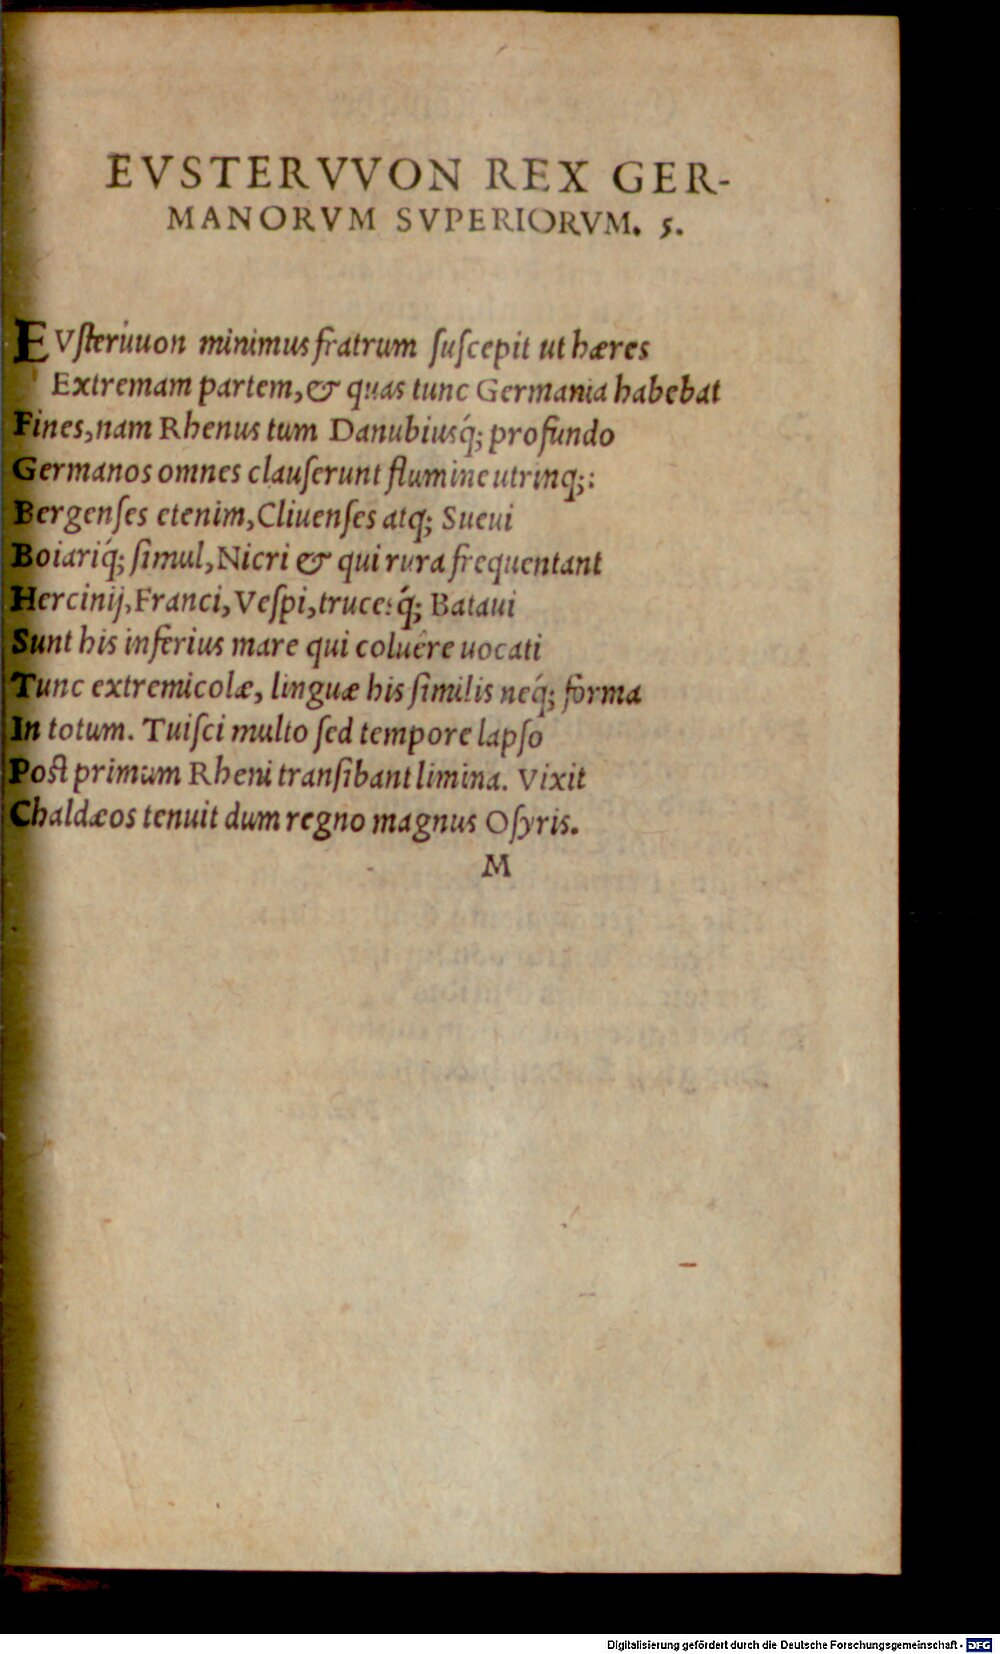 EVSTERVVON REX GER-
MANORVM SVPERIORVM. 5.
EVſteruuon minimus fratrum ſuſcepit ut hæres
Extremam partem, & quas tunc Germania habebat
Fines, nam Rhenus tum Danubiusq́; profundo
Germanos omnes clauſerunt flumine utrinq;:
Bergenſes etenim, Cliuenſes atq; Sueui
Boiariq́; ſimul, Nicri & qui rura frequentant
Hercinij, Franci, Veſpi, trucesq́; Bataui
Sunt his inferius mare qui coluêre uocati
Tunc extremicolæ, linguæ his ſimilis neq́; forma
In totum. Tuiſci multo ſed tempore lapſo
Poſt primum Rheni tranſibant limina. Vixit
Chaldæos tenuit dum regno magnus Oſyris.
M
Digitalisierung gefördert durch die Deutsche Forschungsgemeinschaft - DFG